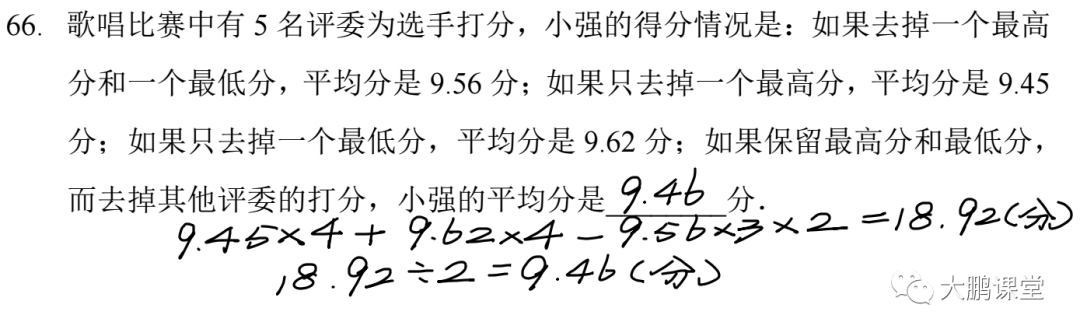 66. 歌唱比赛中有 5 名评委为选手打分，小强的得分情况是：如果去掉一个最高
分和一个最低分，平均分是 9.56 分；如果只去掉一个最高分，平均分是 9.45
分；如果只去掉一个最低分，平均分是 9.62 分；如果保留最高分和最低分，
而去掉其他评委的打分，小强的平均分是 9.46 分．
9.45×4 + 9.62×4 - 9.56×3×2 =18.92(分)
18.92÷2=9.46(分)
大鹏课堂